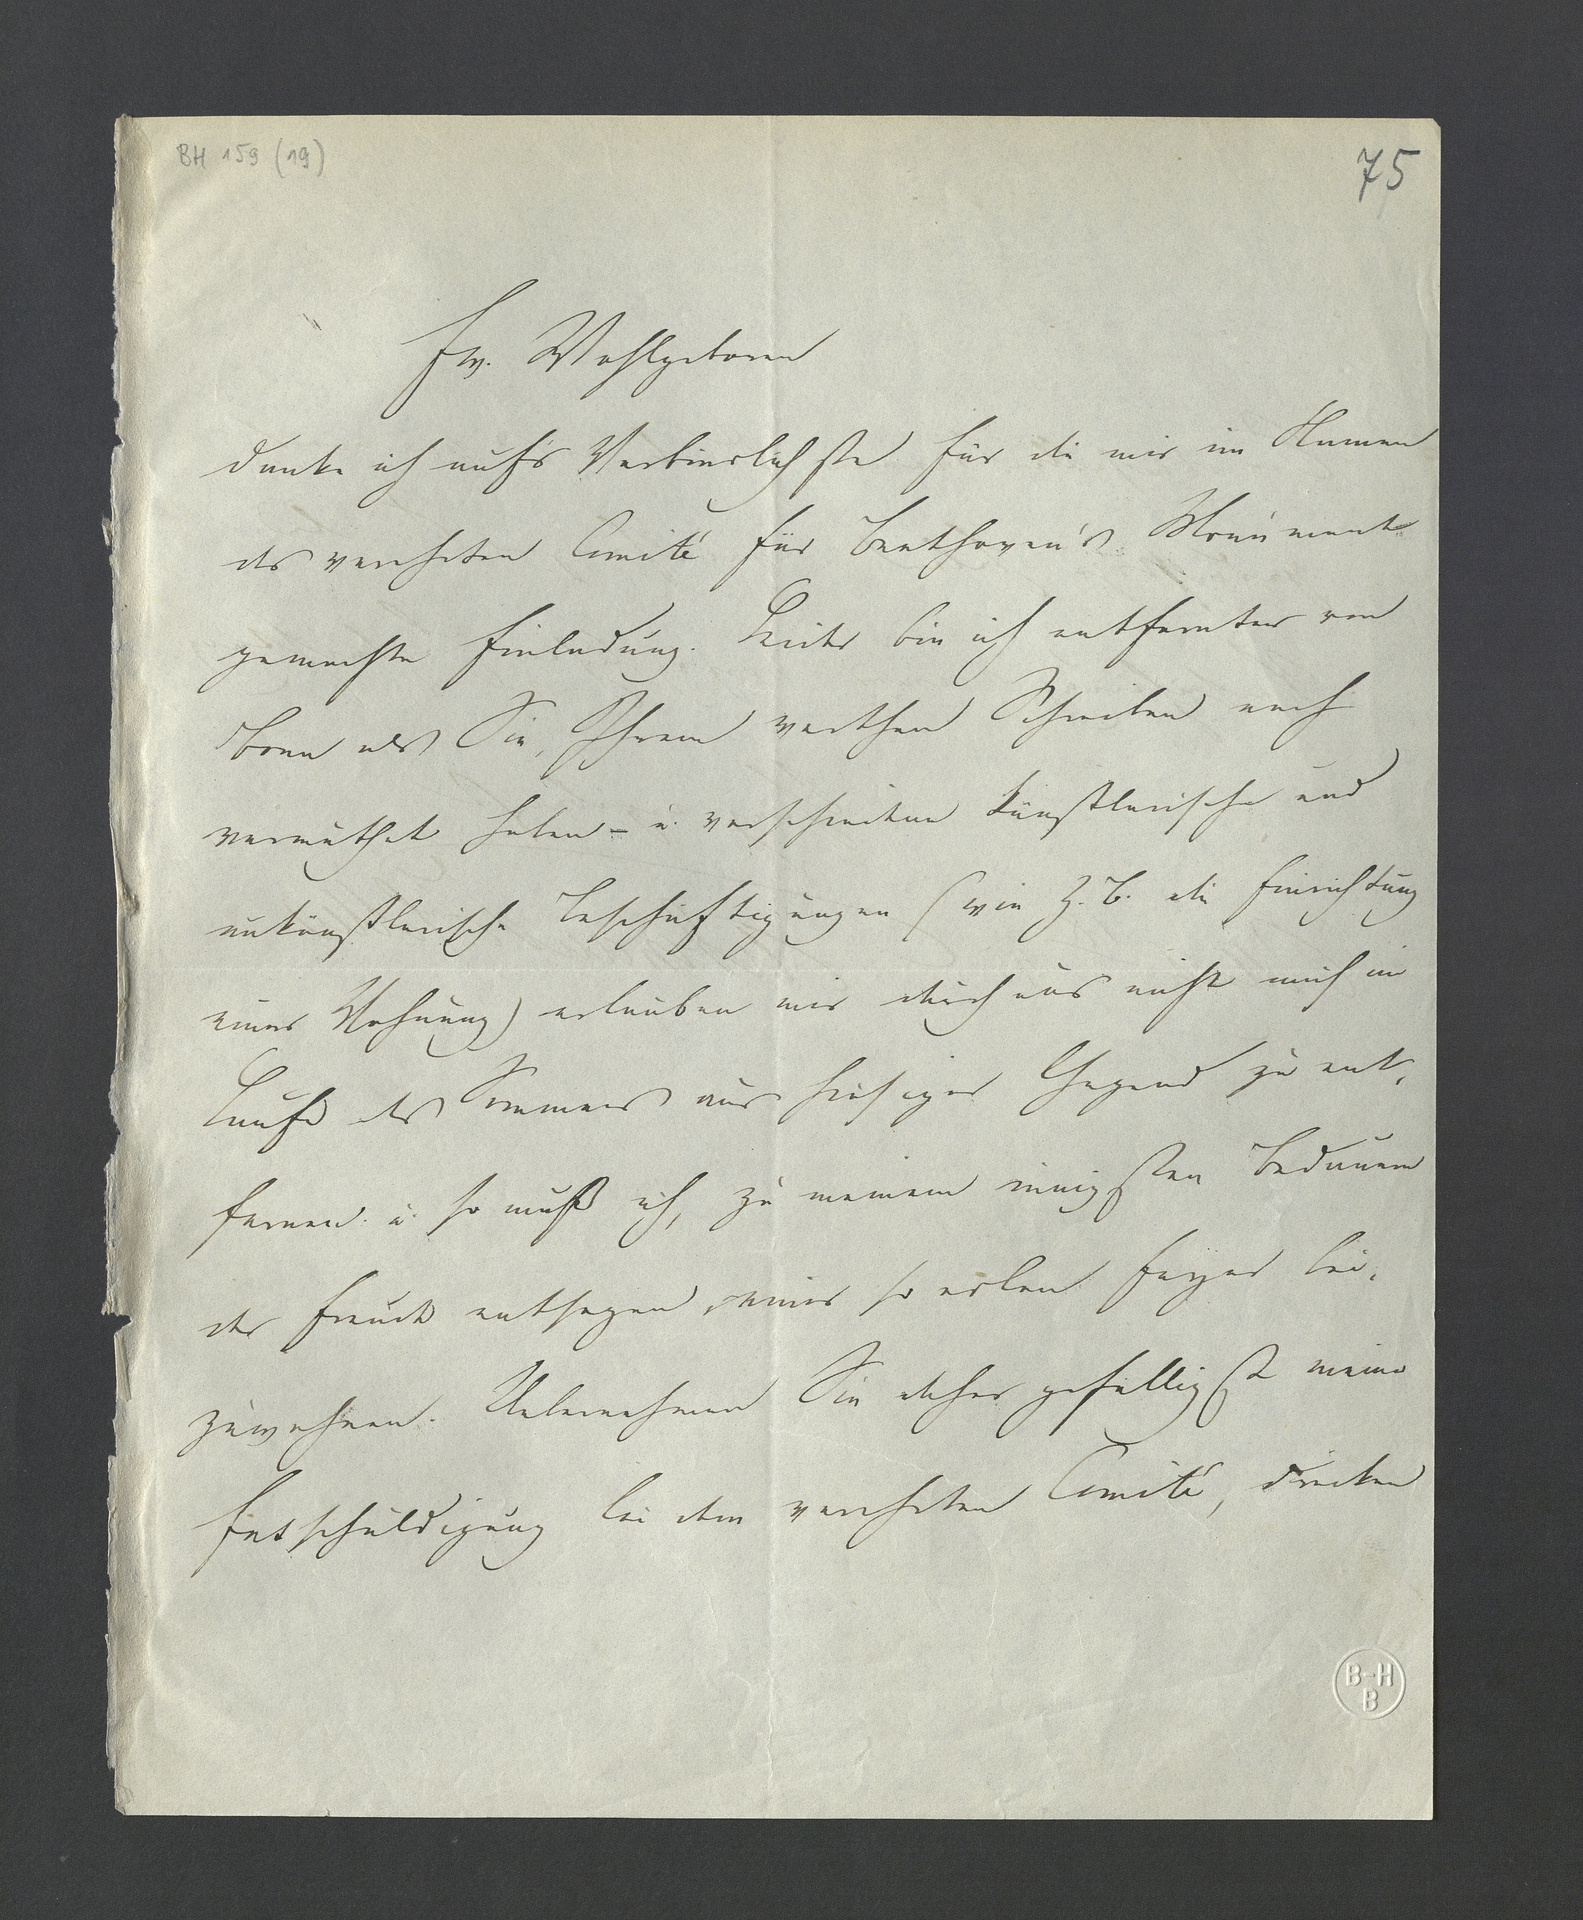 BH 159 (19)
75
Ew. Wohlgeboren
danke ich aufs Verbindlichste für die mir im Namen
des verehrten Comité für Beethoven's Monument
gemachte Einladung. Leider bin ich entfernter von
Bonn als Sie, Ihrem werthen Schreiben nach
vermuthet haben – u. verschiedene künstlerische und
unkünstlerische Beschäftigungen (wie z. B. die Einrichtung
einer Wohnung) erlauben mir durchaus nicht mich im
Laufe des Sommers aus hiesiger Gegend zu ent-
fernen u. so muß ich, zu meinem innigsten Bedauern
der Freude entsagen, einer so edlen Feyer bei-
zuwohnen. Uebernehmen Sie daher gefälligst meine
Entschuldigung bei dem verehrten Comité, drücken
B-H
B